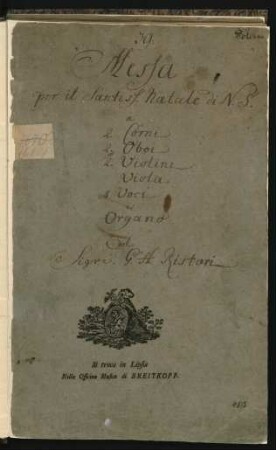 Messa
per il Santiss. Natale di N. S.
a
2. Corni
2. Oboi
2. Violini
Viola
4 Voci
Organo
Del
Sigre. G. A. Ristori
Si trova in Lipsia
Nella Officina Musica di BREITKOPF.